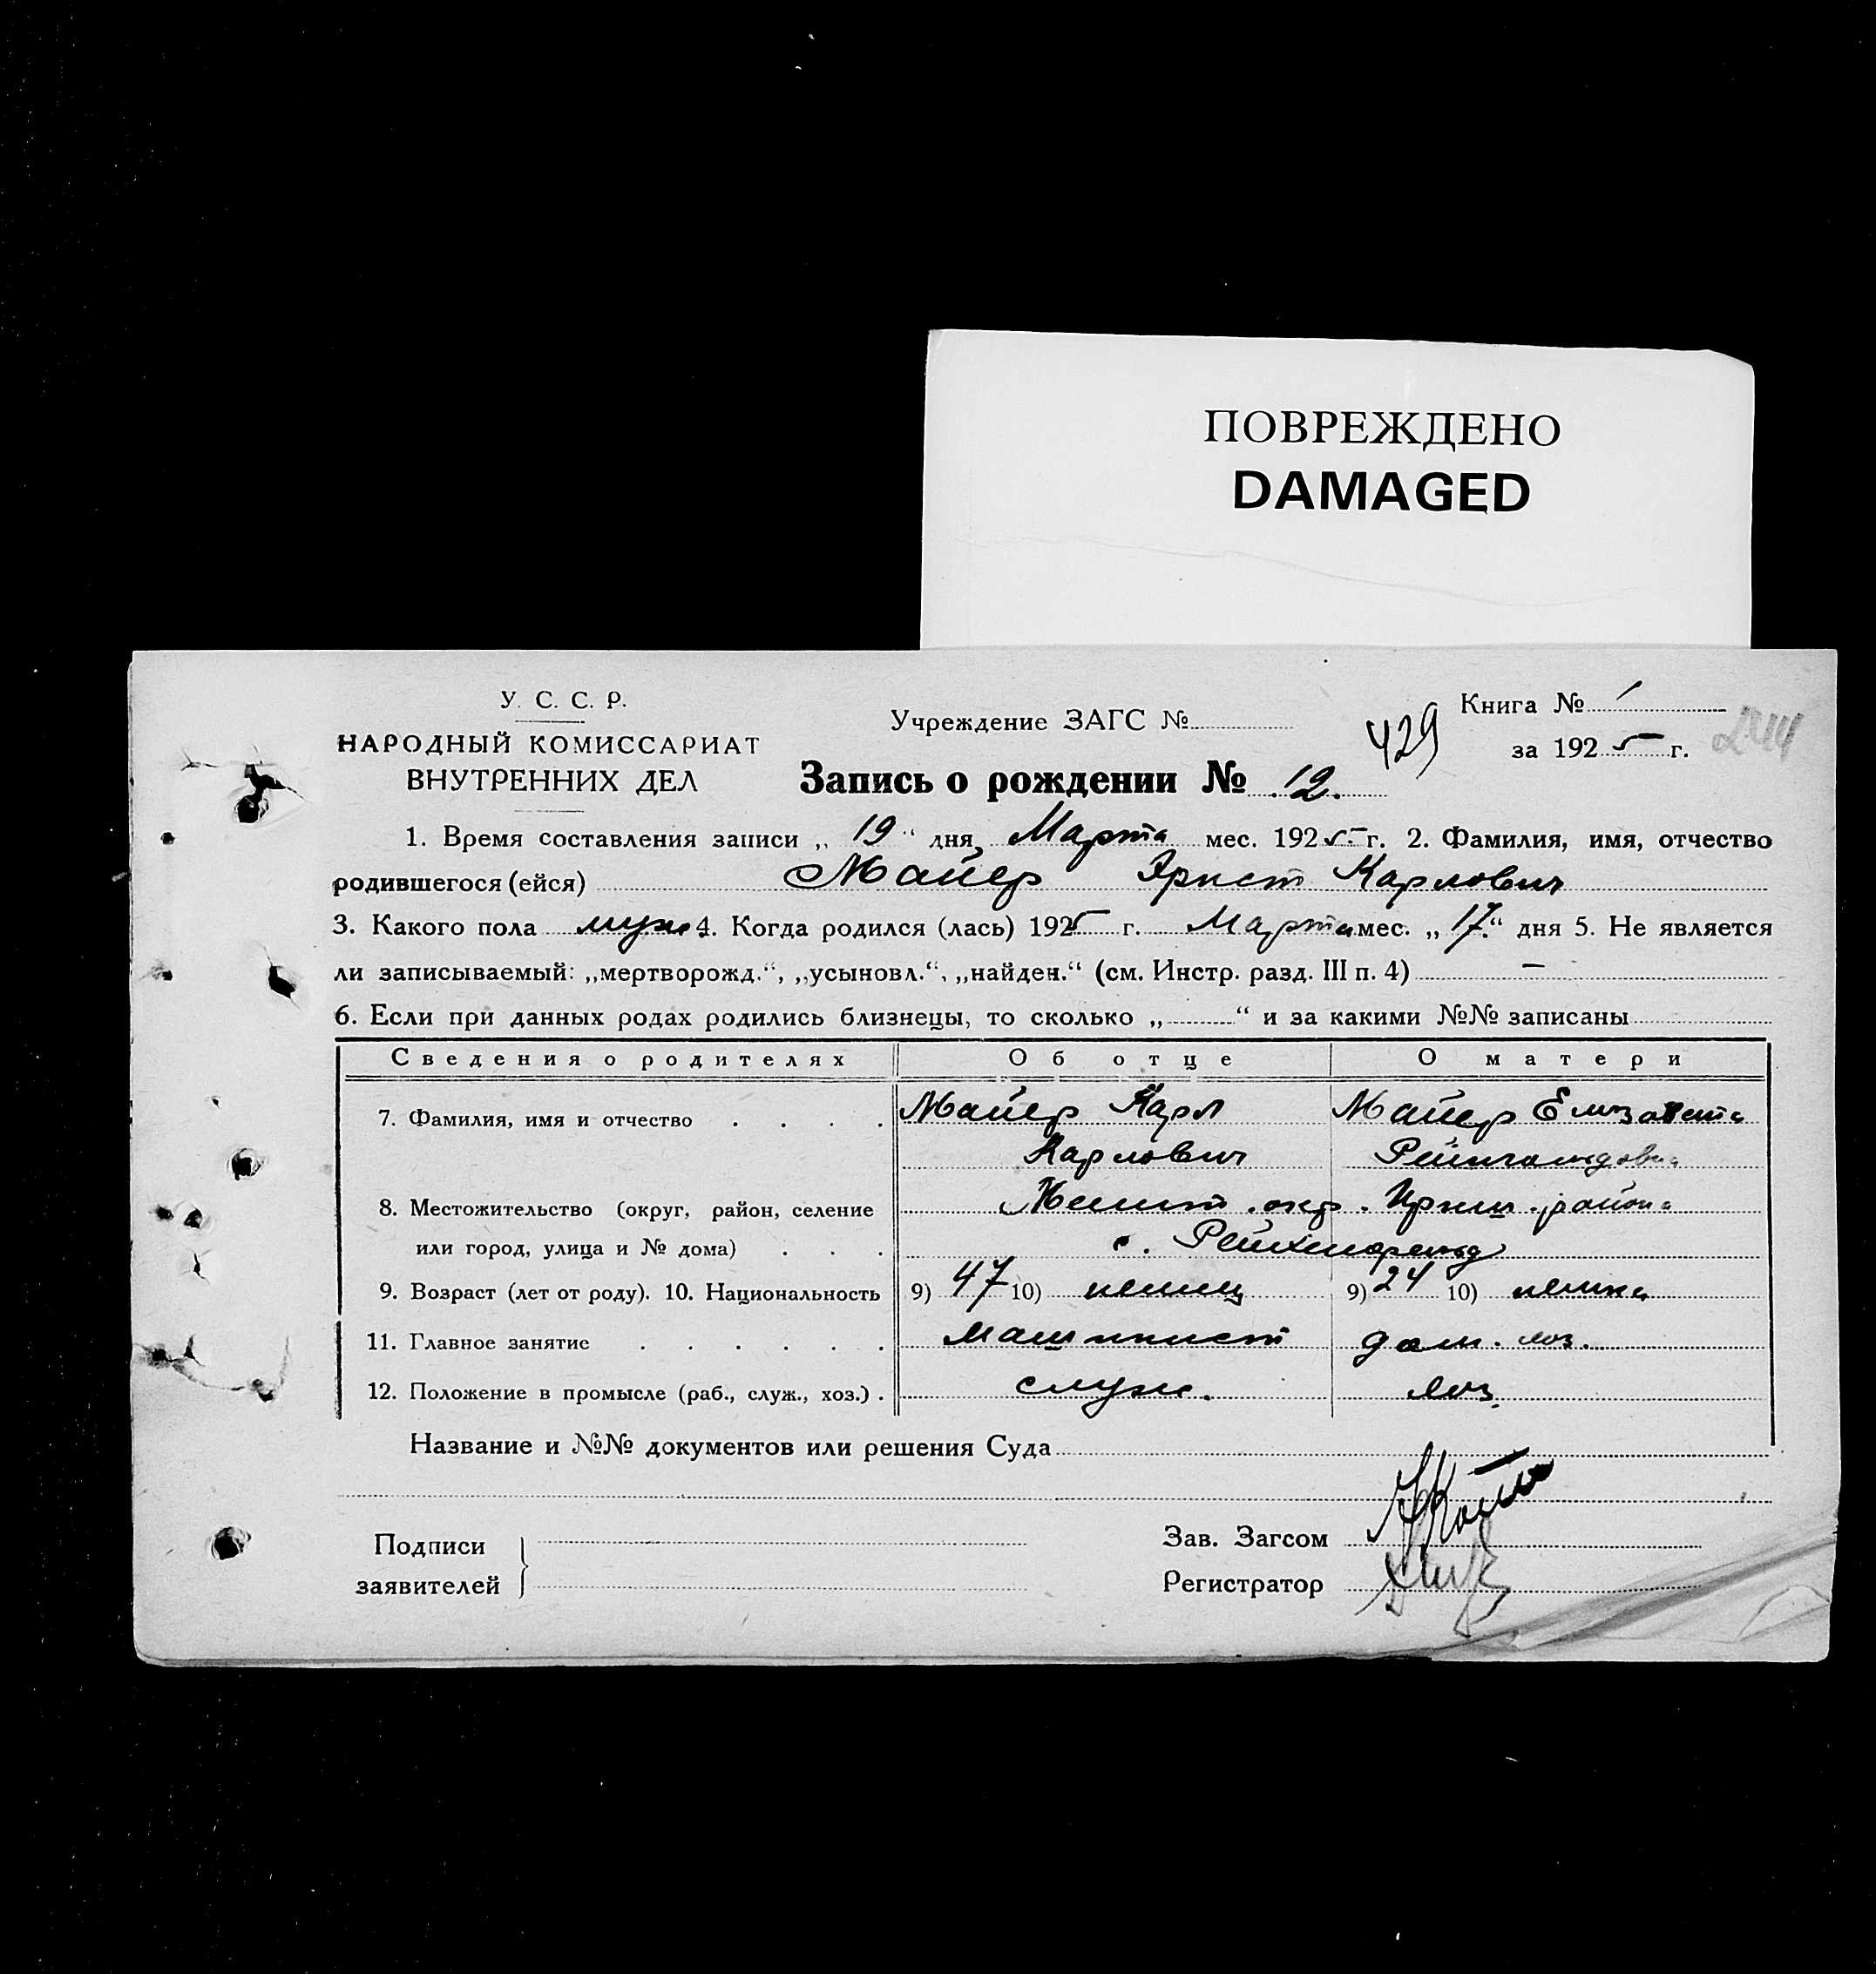 ПОВРЕЖДЕНО
DAMAGED
У. С. С. Р.
НАРОДНЫЙ КОМИССАРИАТ
ВНУТРЕННИХ ДЕЛ
Учреждение ЗАГС №
429
Книга № 1
за 1925 г. 244
Запись о рождении № 12.
1. Время составления записи „ 19 “ дня Марта мес. 1925 г. 2. Фамилия, имя, отчество
родившегося (ейся) Майер Эрнст Карлович
3. Какого пола муж. 4. Когда родился (лась) 1925 г. Марта мес. „ 17 “ дня 5. Не является
ли записываемый: „мертворожд.“, „усыновл.“, „найден.“ (см. Инстр. разд. III п. 4) –
6. Если при данных родах родились близнецы, то сколько „ “ и за какими №№ записаны
Сведения о родителях Об отце О матери
7. Фамилия, имя и отчество . . . . Майер Карл Майер Елизавета
Карлович Рейнгольдовна
8. Местожительство (округ, район, селение окр. Приш. района
или город, улица и № дома) . . . с. Рейхенфельд
9. Возраст (лет от роду). 10. Национальность 9) 47 10) немец 9) 24 10) немка
11. Главное занятие . . . . . . машинист дом. хоз.
12. Положение в промысле (раб., служ., хоз.) . служ. хоз.
Название и №№ документов или решения Суда
Подписи
заявителей
Зав. Загсом
Регистратор